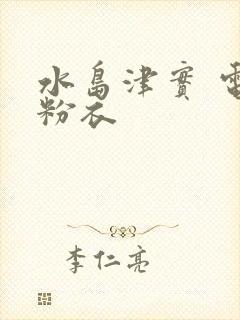 水島津實
粉衣
李仁亮